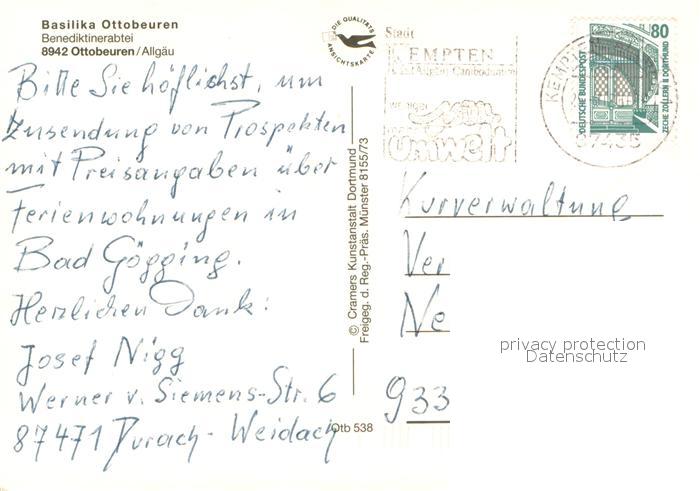 Basilika Ottobeuren
Benediktinerabtei
8942 Ottobeuren/Allgäu
DIE QUALITÄTS
ANSICHTSKARTE
Bitte Sie höflichst, um
Zusendung von Prospekten
mit Preisangaben über
Ferienwohnungen in
Bad Gögging.
Herzlichen Dank:
Josef Nigg
Werner v. Siemens-Str. 6
87471 Durach-Weidach
© Cramers Kunstanstalt Dortmund
Freigeg. d. Reg.-Präs. Münster 8155/73
Otb 538
Stadt
KEMPTEN
Umwelt
KEMPTEN
87435
80
DEUTSCHE BUNDESPOST
ZECHE ZOLLERN II DORTMUND
Kurverwaltung
Ver
Ne
933
privacy protection
Datenschutz